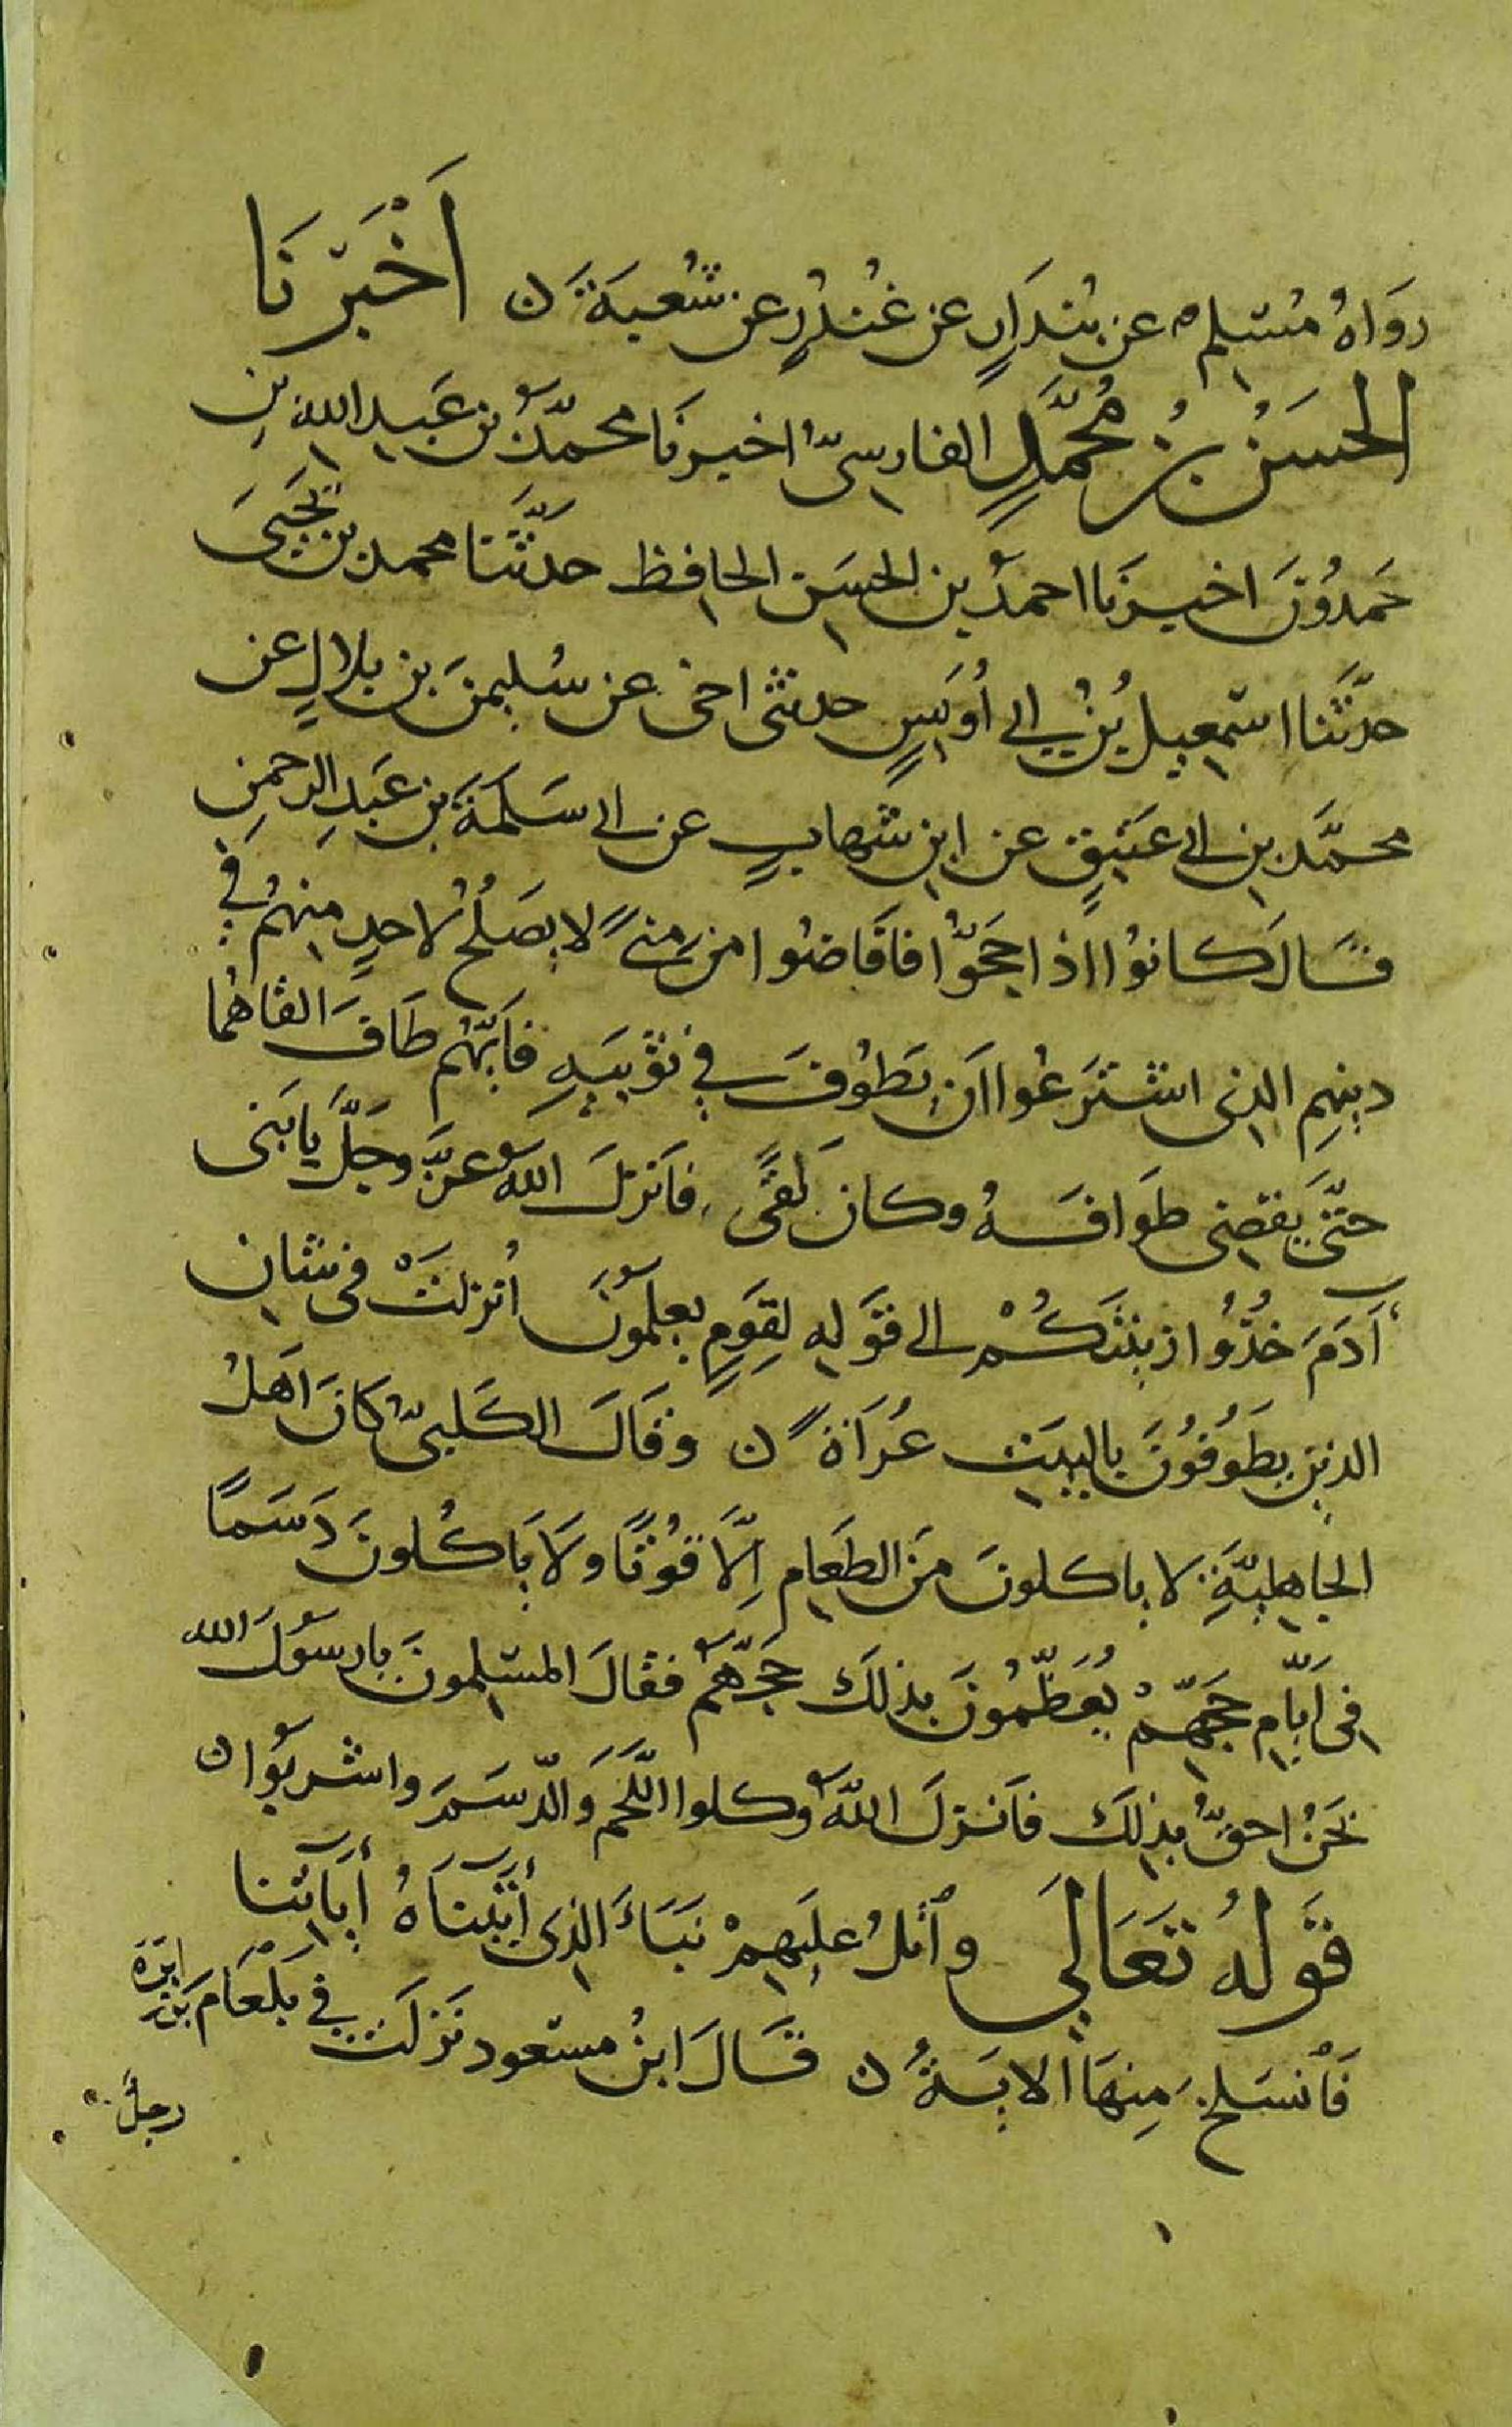 رَوَاهُ مُسْلِم عن بُندَارٍ عن غُنْدُرٍ عن شُعبَةَ ن اَخْبَرَنَا
الحسَنُ بْنُ مُحَمَّدٍ الفارسىُّ اخبرنَا محمّدُ بن عَبدِ الله بنِ
حَمدُونَ اخبرنَا احمدُ بن الحسَن الحافظ حدَّثَنا محمد بن يَحْيَىَ
حدَّثَنا اسْمعيل بْنُ ابى أُوَيسٍ حدثنى اخى عن سُليمنَ بن بلالٍ عن
محمَّد بن ابى عَتيقٍ عن ابن شهابٍ عن ابى سَلَمَةَ بن عَبدِ الرحمنِ
قَالَ كانوُا اذا حَجُّوا فافَاضوا من مِنىً لا يصَلُحُ لاحدٍ منهُم فِى
دينهِم الذى اشتَرَعُوا اَن يَطُوفَ فى ثَوْبَيهِ فاَيّهُم طَافَ القَاهُما
حتّى يَقضى طَوَافَهُ وكانَ لَقىً فاَنزلَ اللهُ عزَّ وجَلَّ يا بَنى
آدَمَ خُذُوا زينتَكُمْ الى قَوَلِهِ لِقومٍ يَعلمَوُنَ اُنزلتْ فى شان
الذين يطَوُفُونَ بالبيَت عُراَةً ن وَقَالَ الكَلبىُّ كَانَ اَهلُ
الجاهليَّةِ لا ياكلونَ مَن الطَعامِ اِلَّا قُوْتًا ولَا ياَكُلونَ دَسَمًا
فى اَيّامِ حَجّهِمْ يُعَظّمُونَ بذلكَ حَجَّهُمْ فقالَ المسْلمونَ يارسُولَ الله
نَحنُ احقُّ بذلِكَ فاَنزلَ اللهُ وكلوا اللَّحَمَ وَالدّسَمَ واشربُوا ن
قَولُهُ تَعَالَى وٱتلُ عليهِمْ نَبَاءَ الذى آتَيناَهُ آياتنا
فَٱنسَلخ مِنهَا الايَةُ ن قَالَ ابنُ مسْعود نَزَلَتْ فى بَلْعَامَ بن ابرَه
رجلٌ